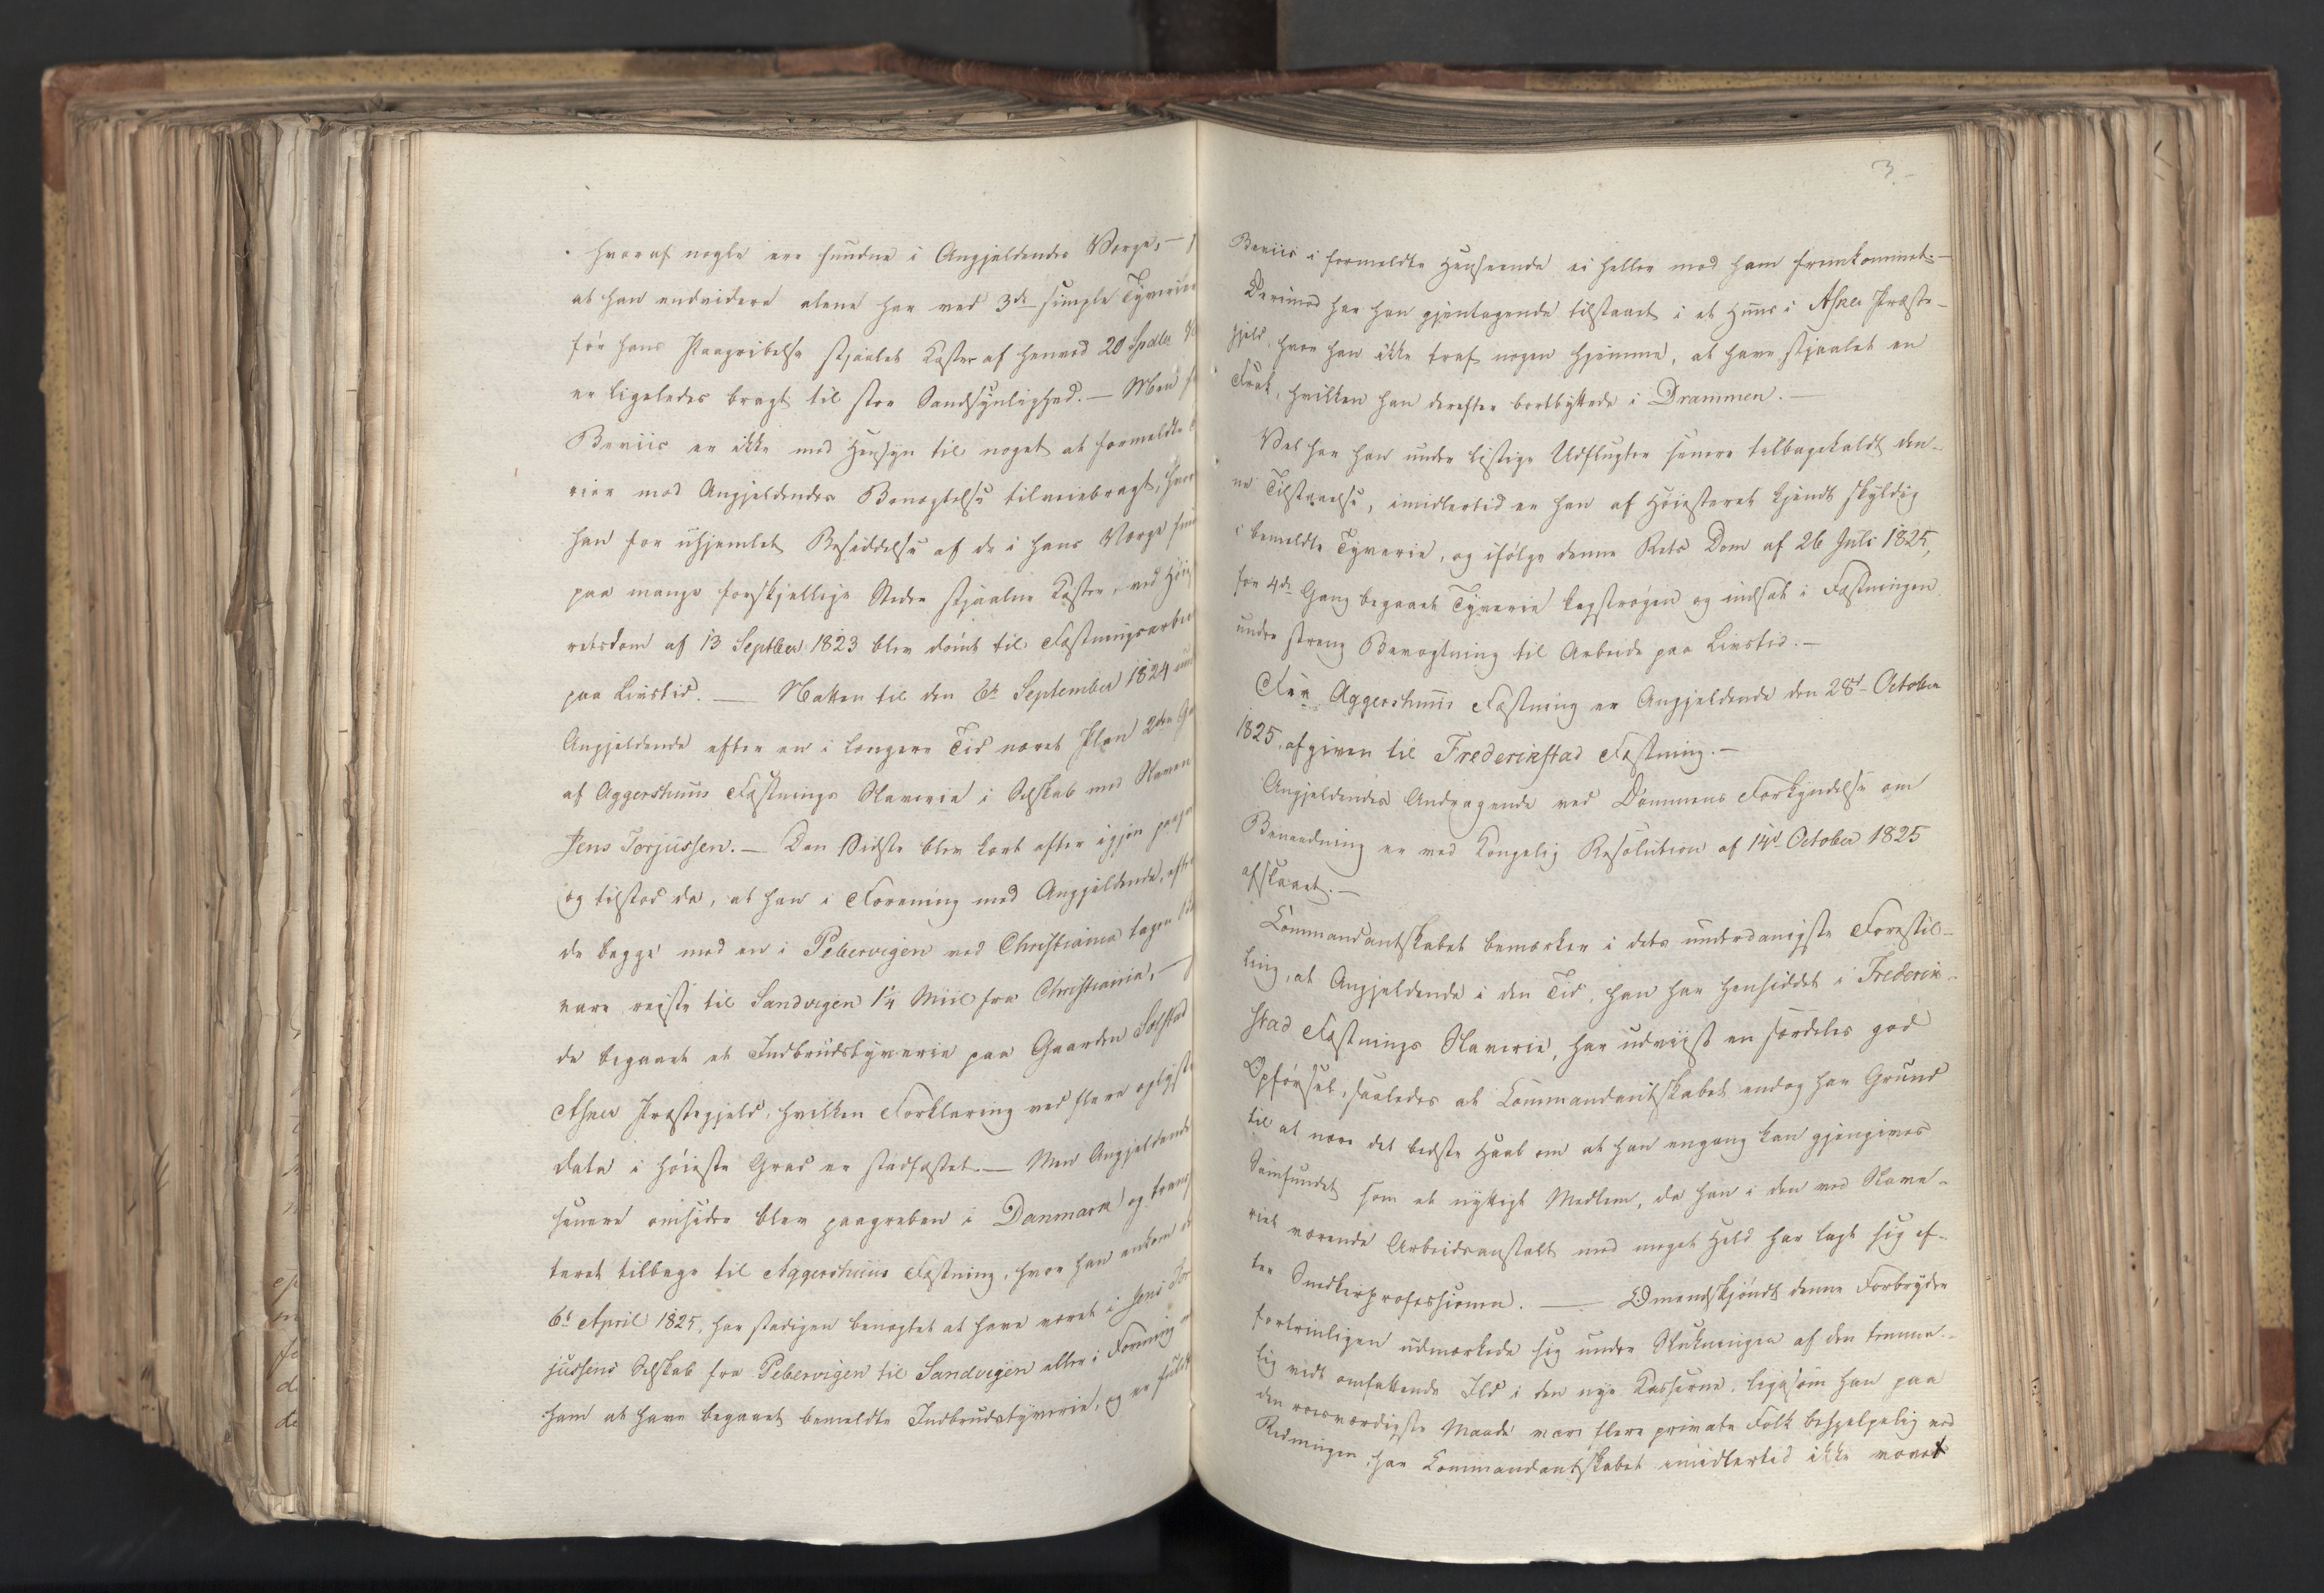 hvoraf nogle ere fundne i Angjældendes Værge, —
at han endvidere alene har ved 3de simple Tyverier
før hans Paagribelse stjaalet Koster af henved 20 Spdlr
er ligeledes bragt til stor Sandsynlighed. — Men
Beviis er ikke med Hensyn til noget af formeldte
rier mod Angjældendes Benægtelse tilveiebragt, hvor
han for uhjemlet Besiddelse af de i hans Værge
paa mange forskjellige Steder stjaalne Koster, ved Høie
retsdom af 13 Septber 1823 blev dømt til Fæstningsarbei
paa Livstid. — Natten til den 6te September 1824
Angjældende efter en i længere Tid næret Plan 2den
af Aggershuus Fæstnings Slaverie i Selskab med Slaven
Jens Torjussen. — Den Sidste blev kort efter igjen
og tilstod da, at han i Forening med Angjældende, efter
de begge med en i Pebervigen ved Christiania tagen
vare reiste til Sandvigen 1¼ Miil fra Christiania, —
de begaaet et Indbrudstyverie paa Gaarden Solstad
Asker Præstegjeld, hvilken Forklaring ved flere oplyste
data i høieste Grad er stadfæstet. — Men Angjældende
senere omsider blev paagreben i Danmark og trans
teret tilbage til Aggershuus Fæstning, hvor han ankom
6te April 1825, har stadigen benægtet at have været i Jens Tor
jussens Selskab fra Pebervigen til Sandvigen eller i Forening
ham at have begaaet bemeldte Indbrudstyverie, og er
3
Beviis i formeldte Henseende ei heller mod ham fremkommet. —
Derimod har han gjentagende tilstaaet i et Huus i Asker Præste-
gjeld, hvor han ikke traf nogen hjemme, at have stjaalet en
Frak, hvilken han derefter bortbyttede i Drammen. —
Vel har han under listige Udflugter senere tilbagekaldt den-
ne Tilstaaelse, imidlertid er han af Høiesteret kjendt skyldig
i bemeldte Tyverie, og ifølge denne Rets Dom af 26 Juli 1825,
for 4de Gang begaaet Tyverie kagstrøgen og indsat i Fæstningen
under streng Bevogtning til Arbeide paa Livstid. —
Fra Aggershuus Fæstning er Angjældende den 28d October
1825, afgiven til Frederikstad Fæstning. —
Angjældendes Andragende ved Dommens Forkyndelse om
Benaadning er ved Kongelig Resolution af 14d October 1825
afslaaet. —
Commandantskabet bemærker i dets underdanigste Forestil-
ling, at Angjældende i den Tid, han har hensiddet i Frederik-
stad Fæstnings Slaverie, har udviist en særdeles god
Opførsel, saaledes at Commandantskabet endog har Grund
til at nære det bedste Haab om at han engang kan gjengives
Samfundet som et nyttigt Medlem, da han i den ved Slave-
riet værende Arbeidsanstalt med meget Held har lagt sig ef-
ter Snedkerprofessionen. — Omendskjøndt denne Forbryder
fortrinligen udmærkede sig under Slukningen af den temme-
lig vidt omfattende Ild i den nye Caserne, ligesom han paa
den roesværdigste Maade var flere private Folk behjelpelig ved
Redningen, har Commandantskabet imidlertid ikke vovet